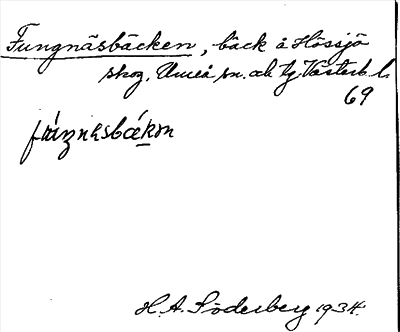 Fungnäsbäcken, bäck å Hössjö
skog, Umeå sn. och tg. Västerb. l.
69
H. A. Söderberg 1934.